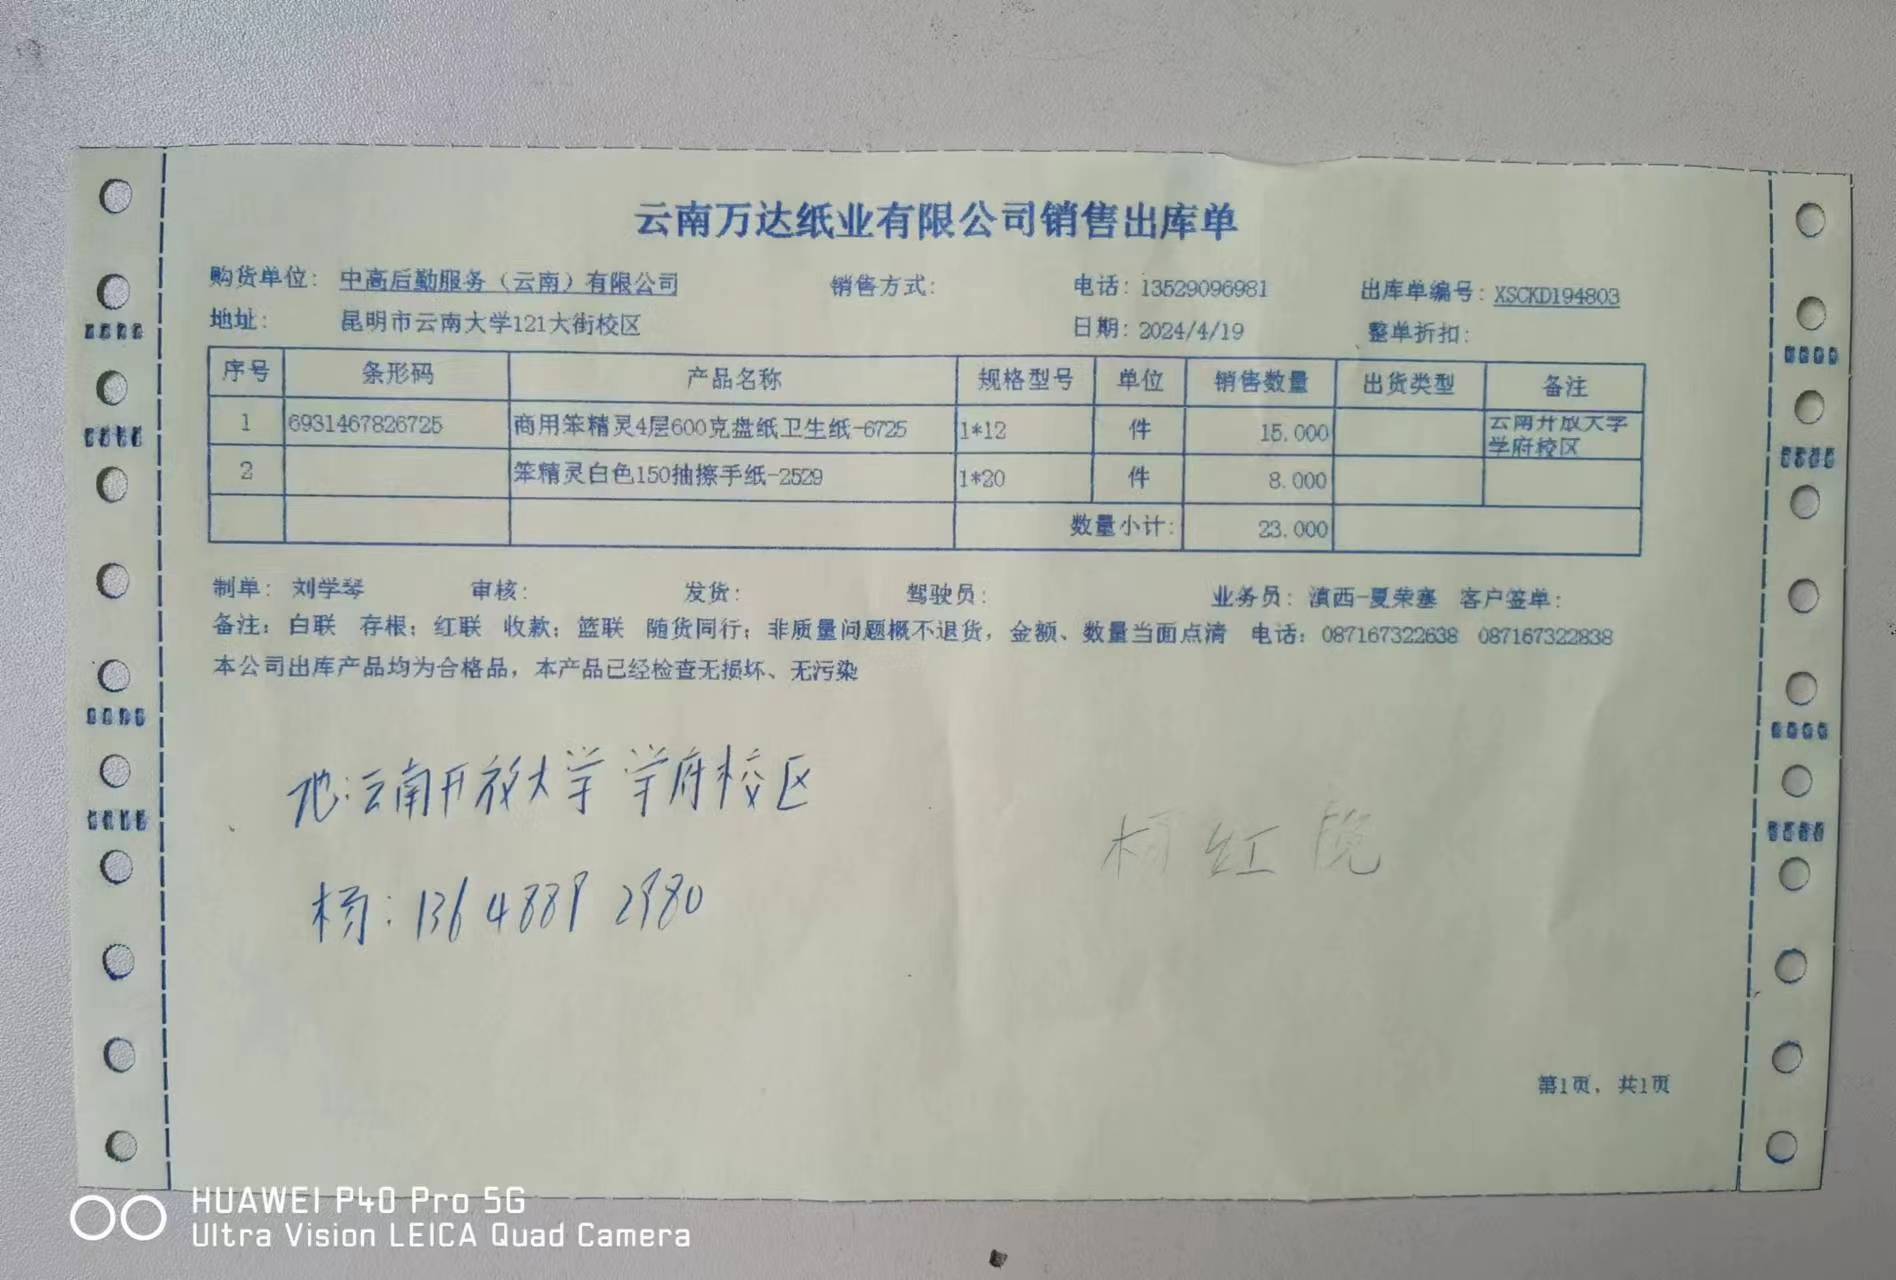 云南万达纸业有限公司销售出库单
购货单位： 中高后勤服务（云南）有限公司 销售方式： 电话：13529096981 出库单编号：XSCKD194803
地址： 昆明市云南大学121大街校区 日期：2024/4/19 整单折扣：
序号 条形码 产品名称 规格型号 单位 销售数量 出货类型 备注
1 6931467826725 商用笨精灵4层600克盘纸卫生纸-6725 1*12 件 15.000 云南开放大学
学府校区
2 笨精灵白色150抽擦手纸-2529 1*20 件 8.000
数量小计： 23.000
制单： 刘学琴 审核： 发货： 驾驶员： 业务员：滇西-夏荣塞 客户签单：
备注：白联 存根；红联 收款；篮联 随货同行；非质量问题概不退货，金额、数量当面点清 电话：087167322638 087167322838
本公司出库产品均为合格品，本产品已经检查无损坏、无污染
地：云南开放大学学府校区
杨：136 4889 2980
杨红
第1页，共1页
HUAWEI P40 Pro 5G
Ultra Vision LEICA Quad Camera